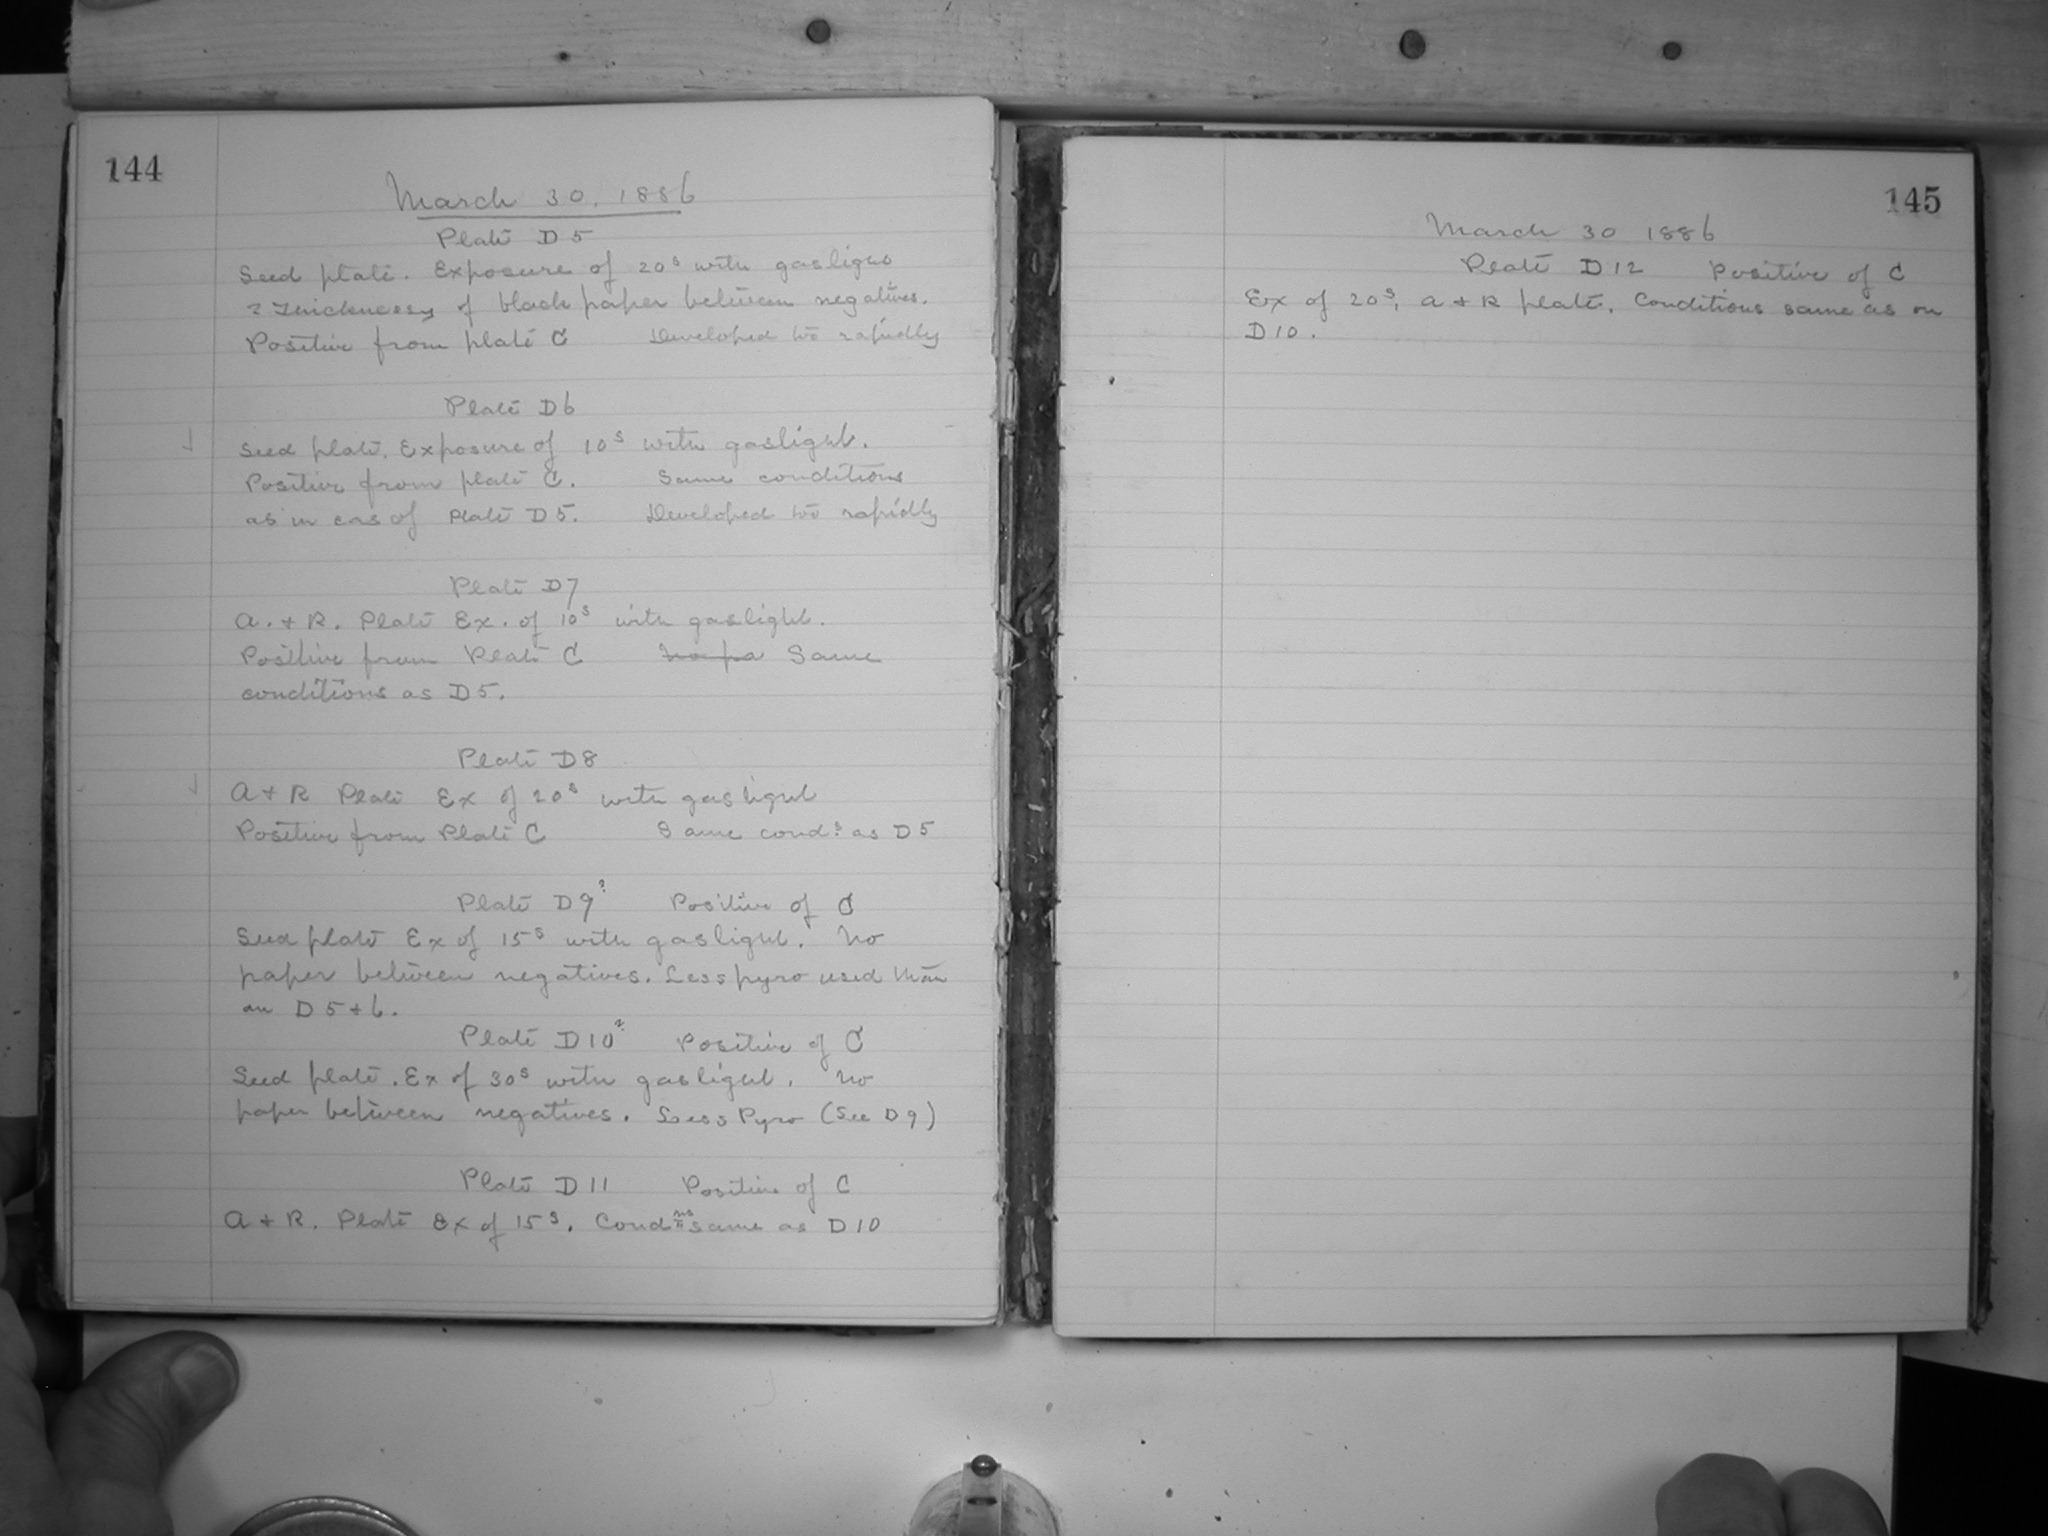 144
March 30, 1886
Plate D5
Seed plate. Exposure of 20s with gaslight
2 Thicknesses of black paper between negatives.
Positive from plate C Developed too rapidly
Plate D6
Seed plate. Exposure of 10s with gaslight.
Positive from plate C. Same conditions
as in cas of Plate D5. Developed too rapidly
Plate D7
A. + R. Plate Ex. of 10s with gaslight.
Positive from Plate C Same
conditions as D5.
Plate D8
A + R Plate Ex of 20s with gaslight
Positive from Plate C Same cond.s as D5
Plate D9? Positive of C
Seed plate Ex of 15s with gaslight. No
paper between negatives. Less pyro used than
on D5+6.
Plate D10? Positive of C
Seed plate. Ex of 30s with gaslight. No
paper between negatives. Less Pyro (See D9)
Plate D11 Positive of C
A + R. Plate Ex of 15s. Condns same as D10
145
March 30 1886
Plate D12 Positive of C
Ex of 20s, A + R plate. Conditions same as on
D10.